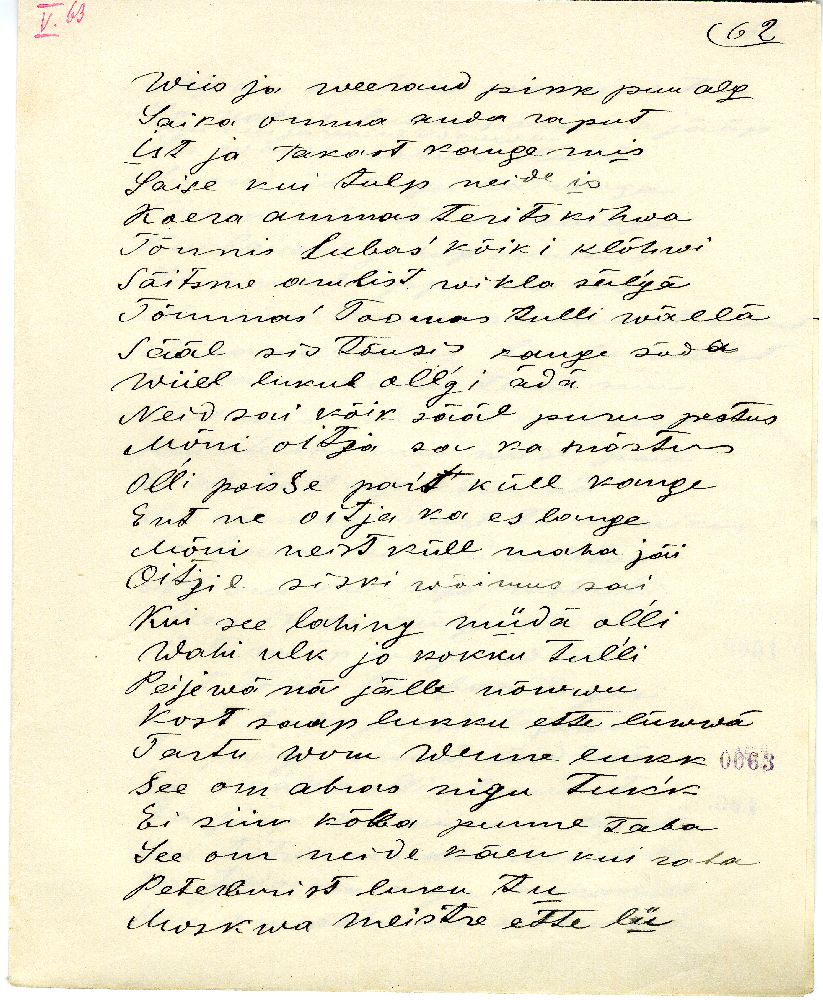 V. 63
62
Wiis ja weerand pikk puu alg
Saiba omma anda raput
Üst ja Takast kange mis
Saise kui tulp neide is
Koera ammas Terits kihwa
Tõnnis lubas' kõik i klõhwi
Säitsme andist wikla sälgä
Tõmmas' Toomas tulli wällä
Sääl sis Tõusis range sõda
Wiiel lukul olli ädä
Neid sai kõik sääl purus pestus
Mõni oitja sa ka mõstus
Olli poisse pait küll kange
Ent ne oitja ka es lange
Mõni neist küll maha jäi
Oitjil siski wõimus sai
Kui see lahing müdä olli
Wahi ulk jo kokku tulli
Peijewä nä jälle nõwwu
Kost saap lukku ette lüwwä
Tartu wom Wenne lukk
0063
See om abras nigu Tukk
Ei siin kõlba punne Taba
See om neide käen kui raba
Peterburist luku tu
Moskwa meistre ette lü